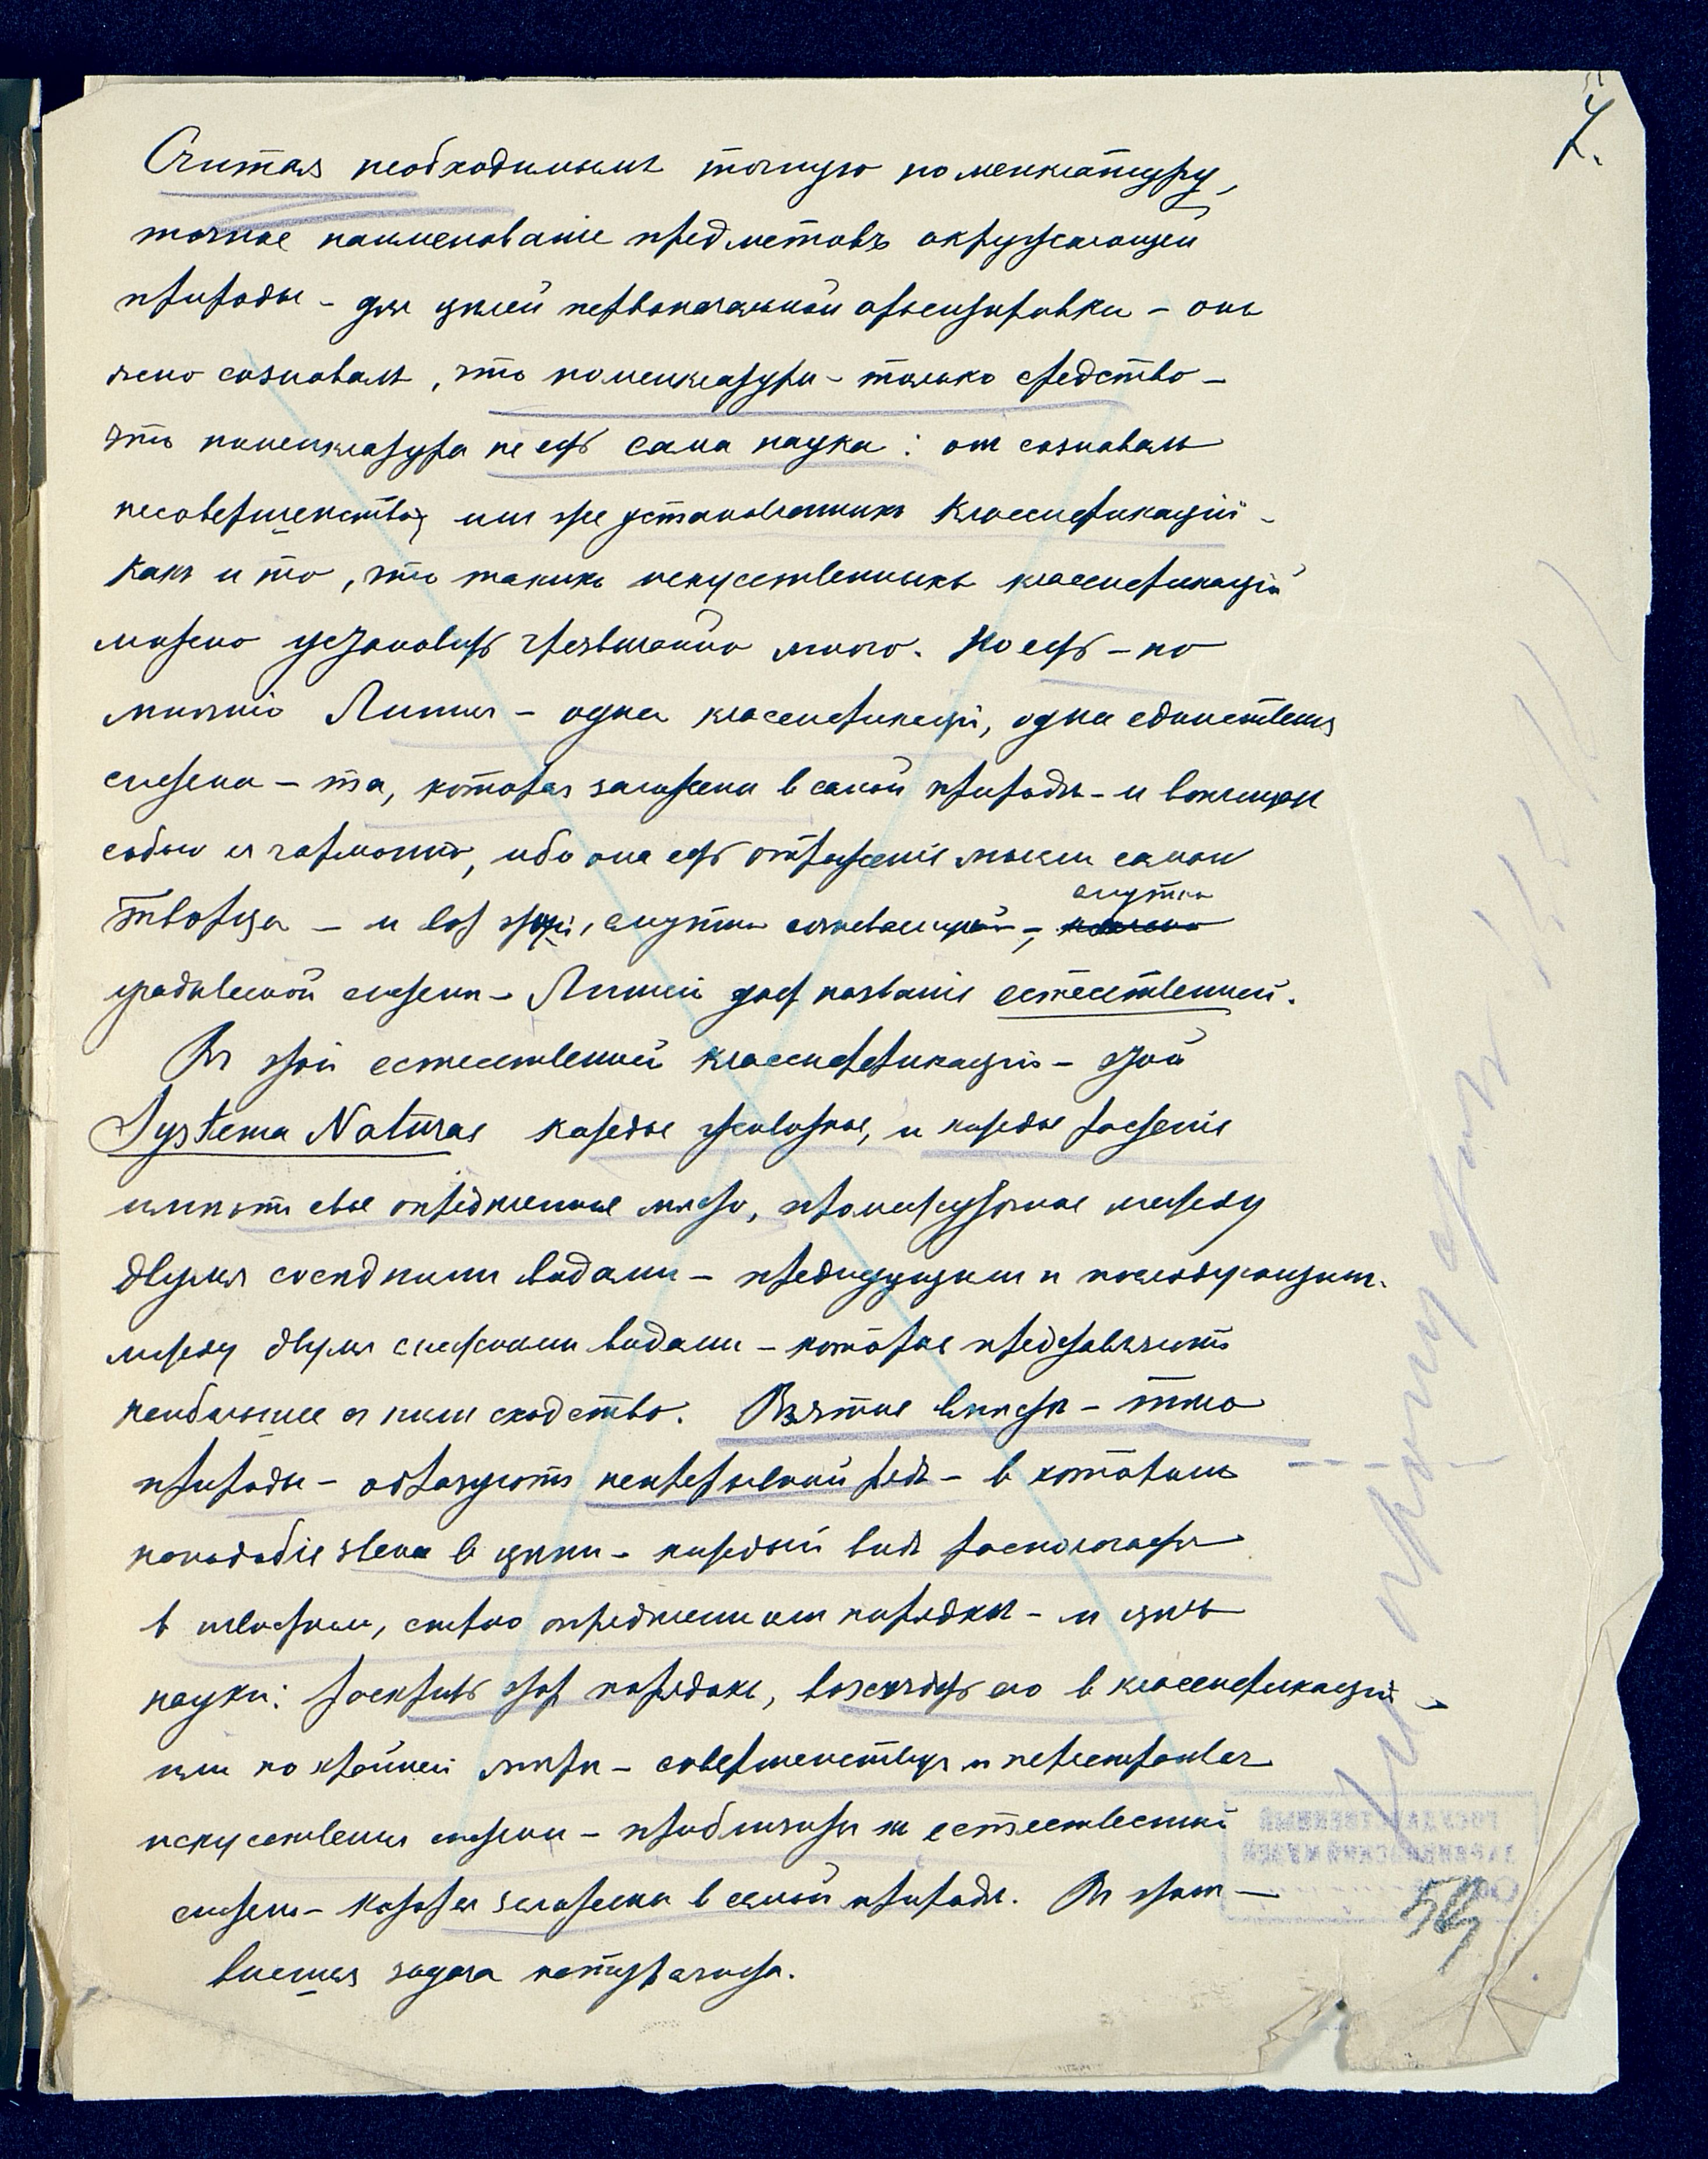 7.
Считая необходимымъ точную номенклатуру,
точное наименованіе предметовъ окружающей
природы – для цѣлей первоначальной орьентировки – онъ
ясно сознавалъ, что номенклатура – только средство –
что номенклатура не есть сама наука: он сознавалъ
несовершенство им же установленныхъ классификацій –
какъ и то, что такихъ искусственныхъ классификацій
можно установить чрезвычайно много. Но есть – по
мнѣнію Линнея – одна классификація, одна единственная
система – та, которая заложена в самой природѣ – и воплощает
собою ея гармонію, ибо она есть отраженіе мысли самой
творца – и вот этой, смутно сознаваемой –, смутно
угадываемой системѣ – Линней дает названіе естественной.
Въ этой естественной классиффикаціи – этой
Systema Naturae каждое животное, и каждое растеніе
имѣютъ свое опредѣленное мѣсто, промежуточное между
двумя сосѣдними видами – предидущим и послѣдующим.
между двумя смежными видами – которые представляютъ
наибольшее съ ними сходство. Взятые вмѣстѣ – тѣла
природы – образуютъ непрерывный рядъ – в которомъ
наподобіе звена в цѣпи – каждый видъ располагается
в извѣстном, строго опредѣленном порядкѣ – и цѣль
науки: раскрыть этот порядокъ, возсоздать его в классификаціи –
или по крайней мѣрѣ – совершенствуя и перестраивая
искусственныя системы – приблизиться к естественной
системѣ – которая заложена в самой природѣ. Въ этом –
высшая задача натуралиста.
ГОСУДАРСТВЕННЫЙ
ДАРВИНОВСКИЙ МУЗЕЙ